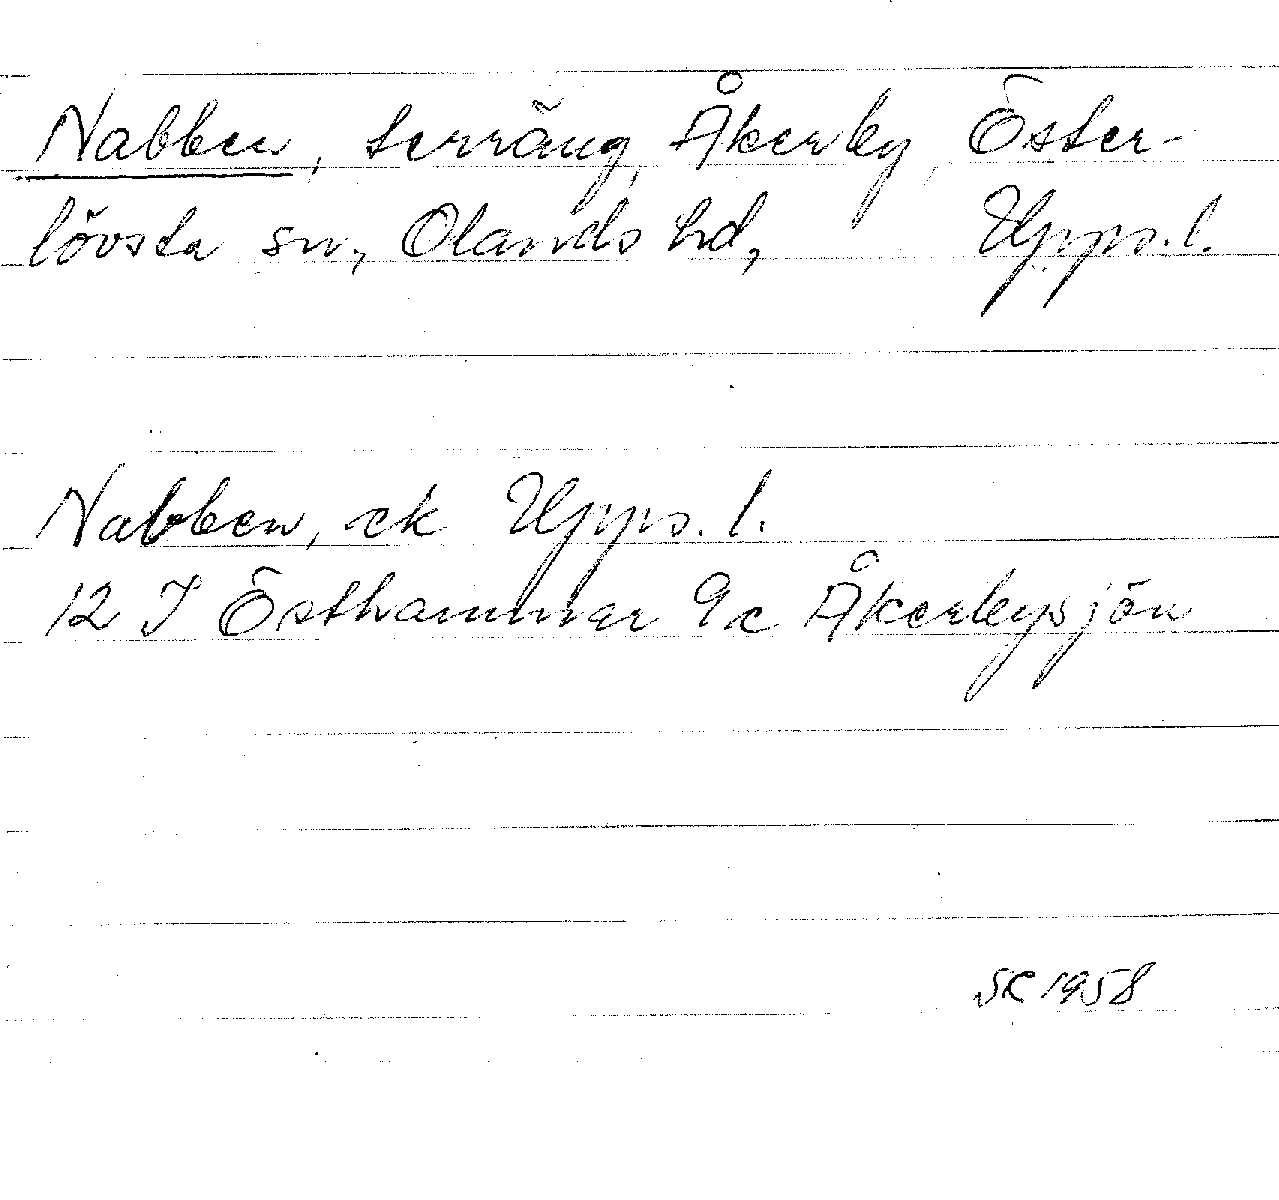 Nabben, terräng, Åkerby, Öster-
lövsta sn, Olands hd, Upps. l.
Nabben, ek Upps. l.
12 I Östhammar 9c Åkerbysjön
SR 1958